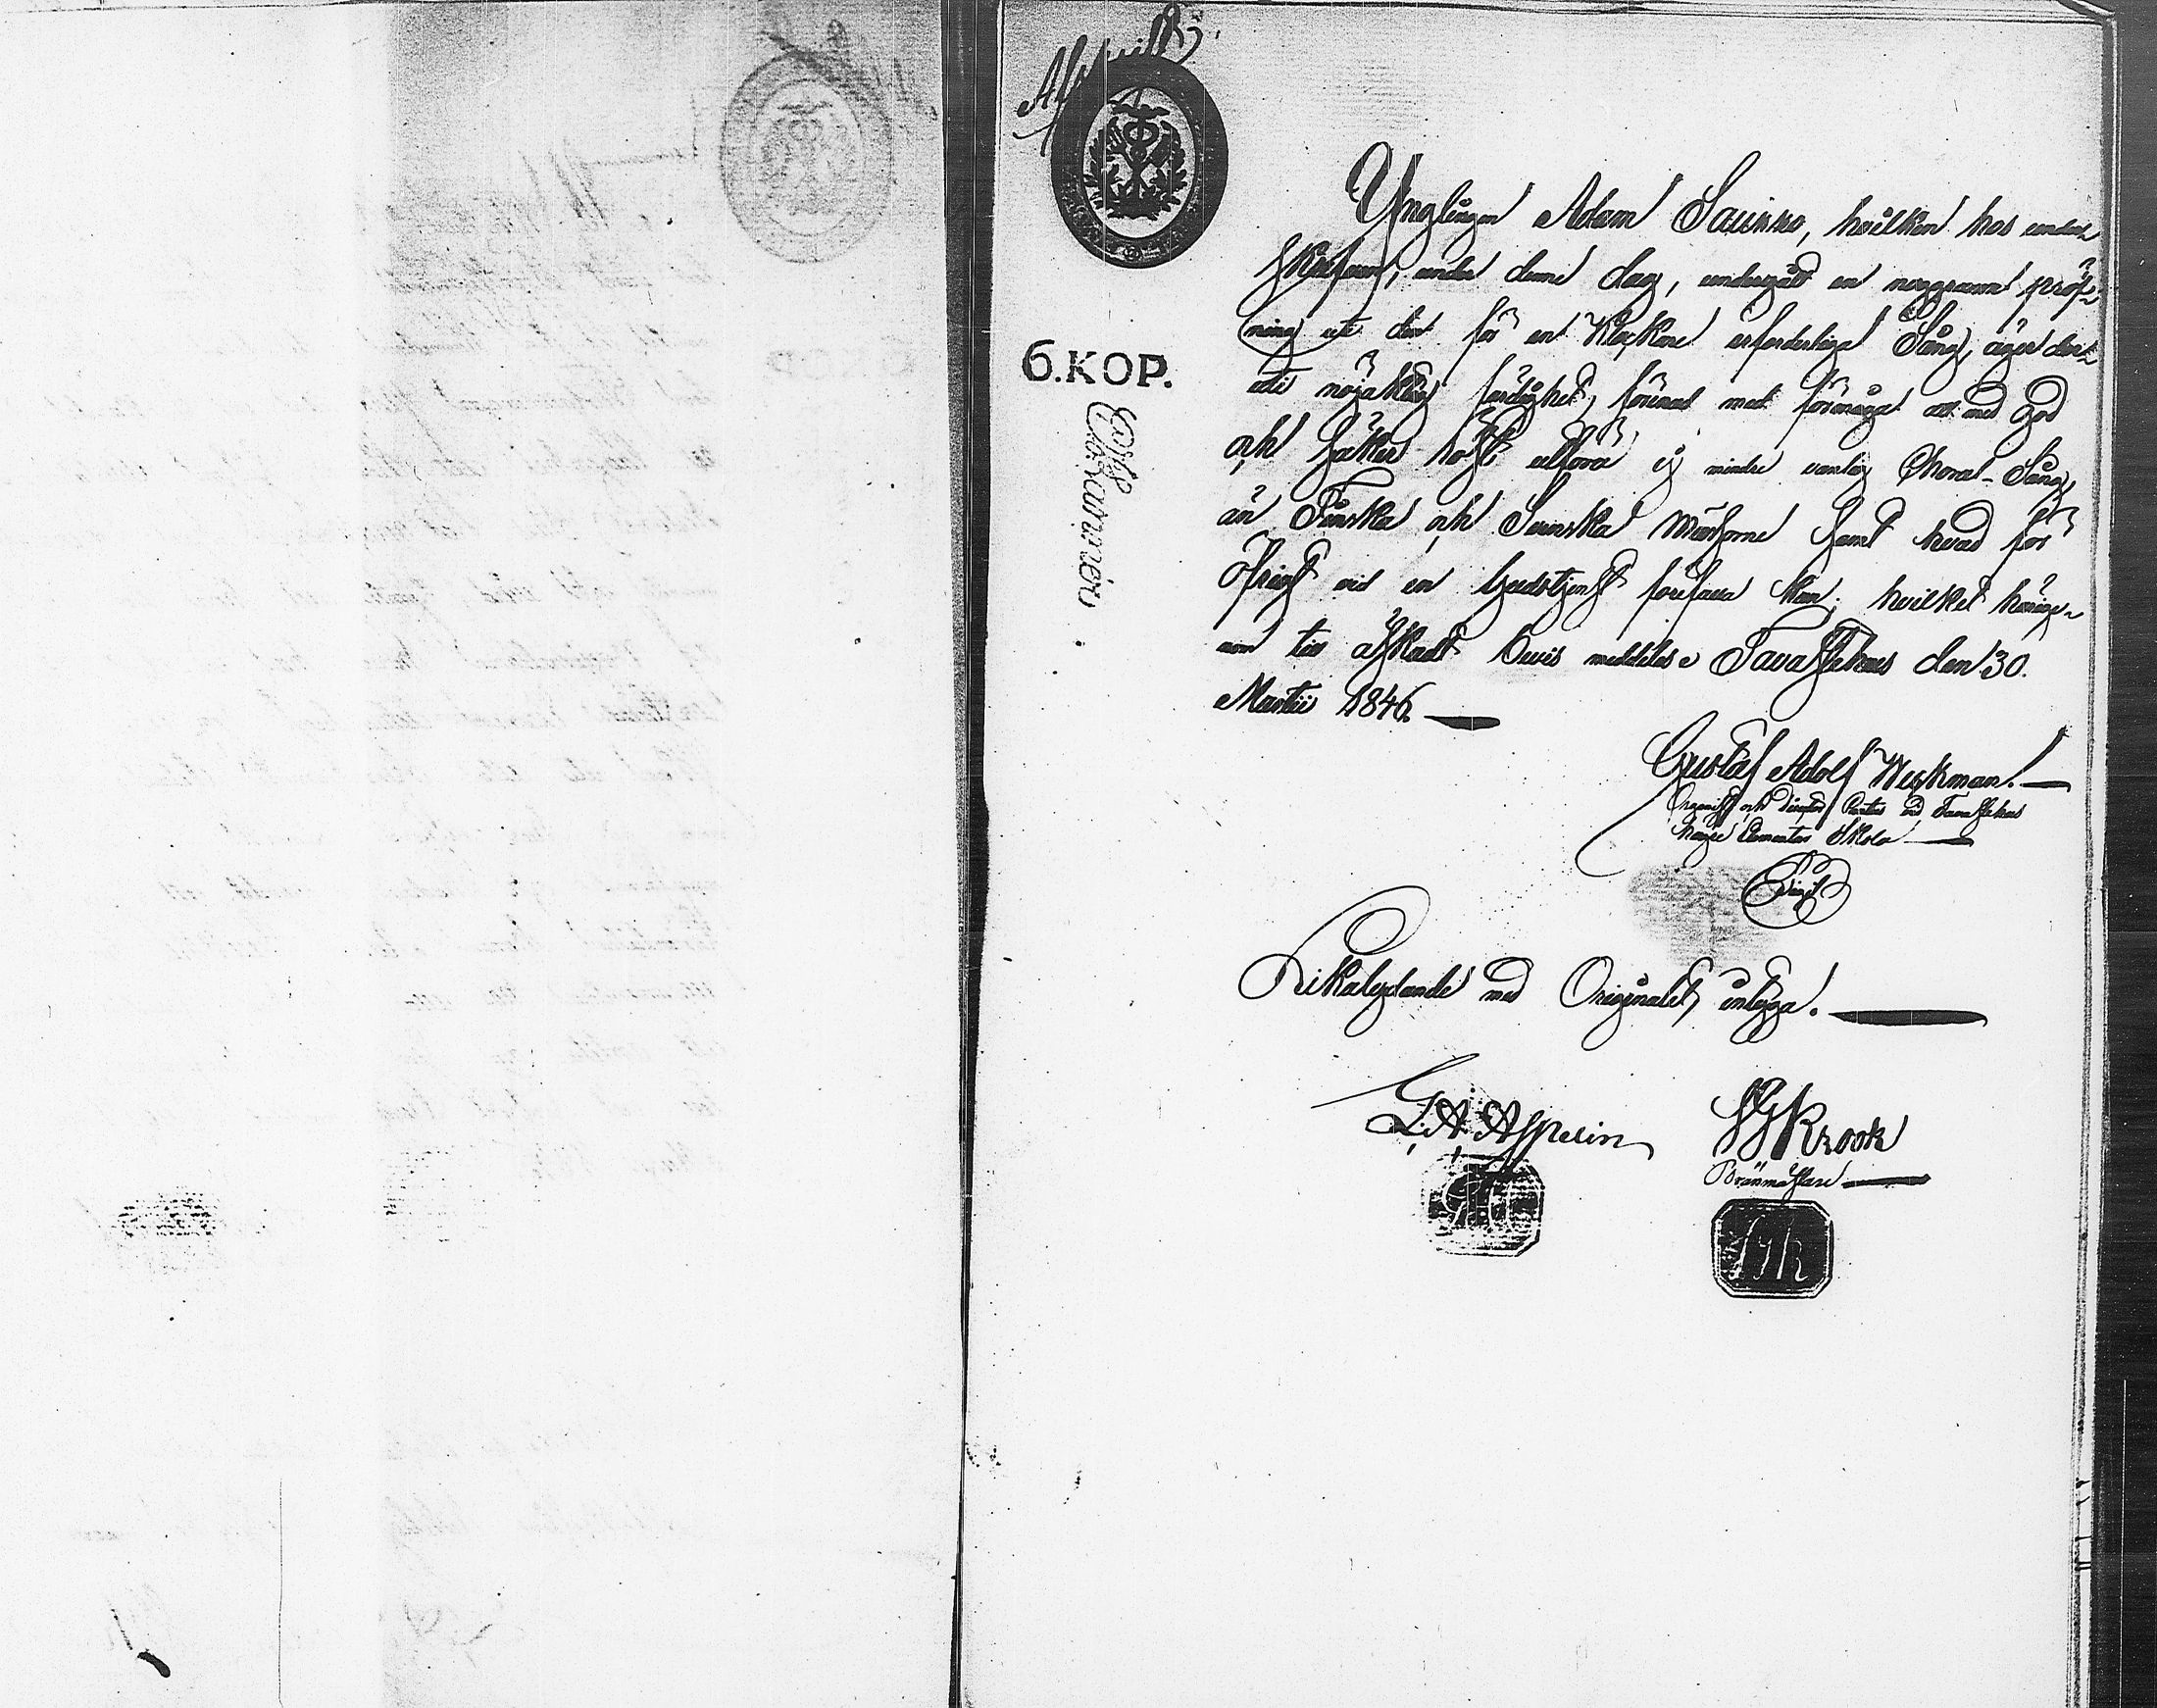 Afskrift.
6. KOP.
Ynglingen Adam Saurén, hvilken hos under-
skrifvare, under denne dag, undergått en noggrann pröf-
ning uti den för en Klockare erforderliga Sång, äger der-
uti nöjaktig färdighet, förenad med förmåga att med god
och säker röst utföra ej mindre vanlig Choral-Sång,
än Finska och Svenska Messorne samt hvad för
öfrigt vid en Gudstjenst förefalla kan; hvilket härige-
nom till äskadt bevis meddelas. Tavastehus den 30.
Martii 1846.
Gustaf Adolf Weckman.
Organist och Director Cantus vid Tavastehus
högre Elementar Skola
Sigill
Likalydande med Originalet, intyga.
G. A. Asspelin
Krook
Brännmästare